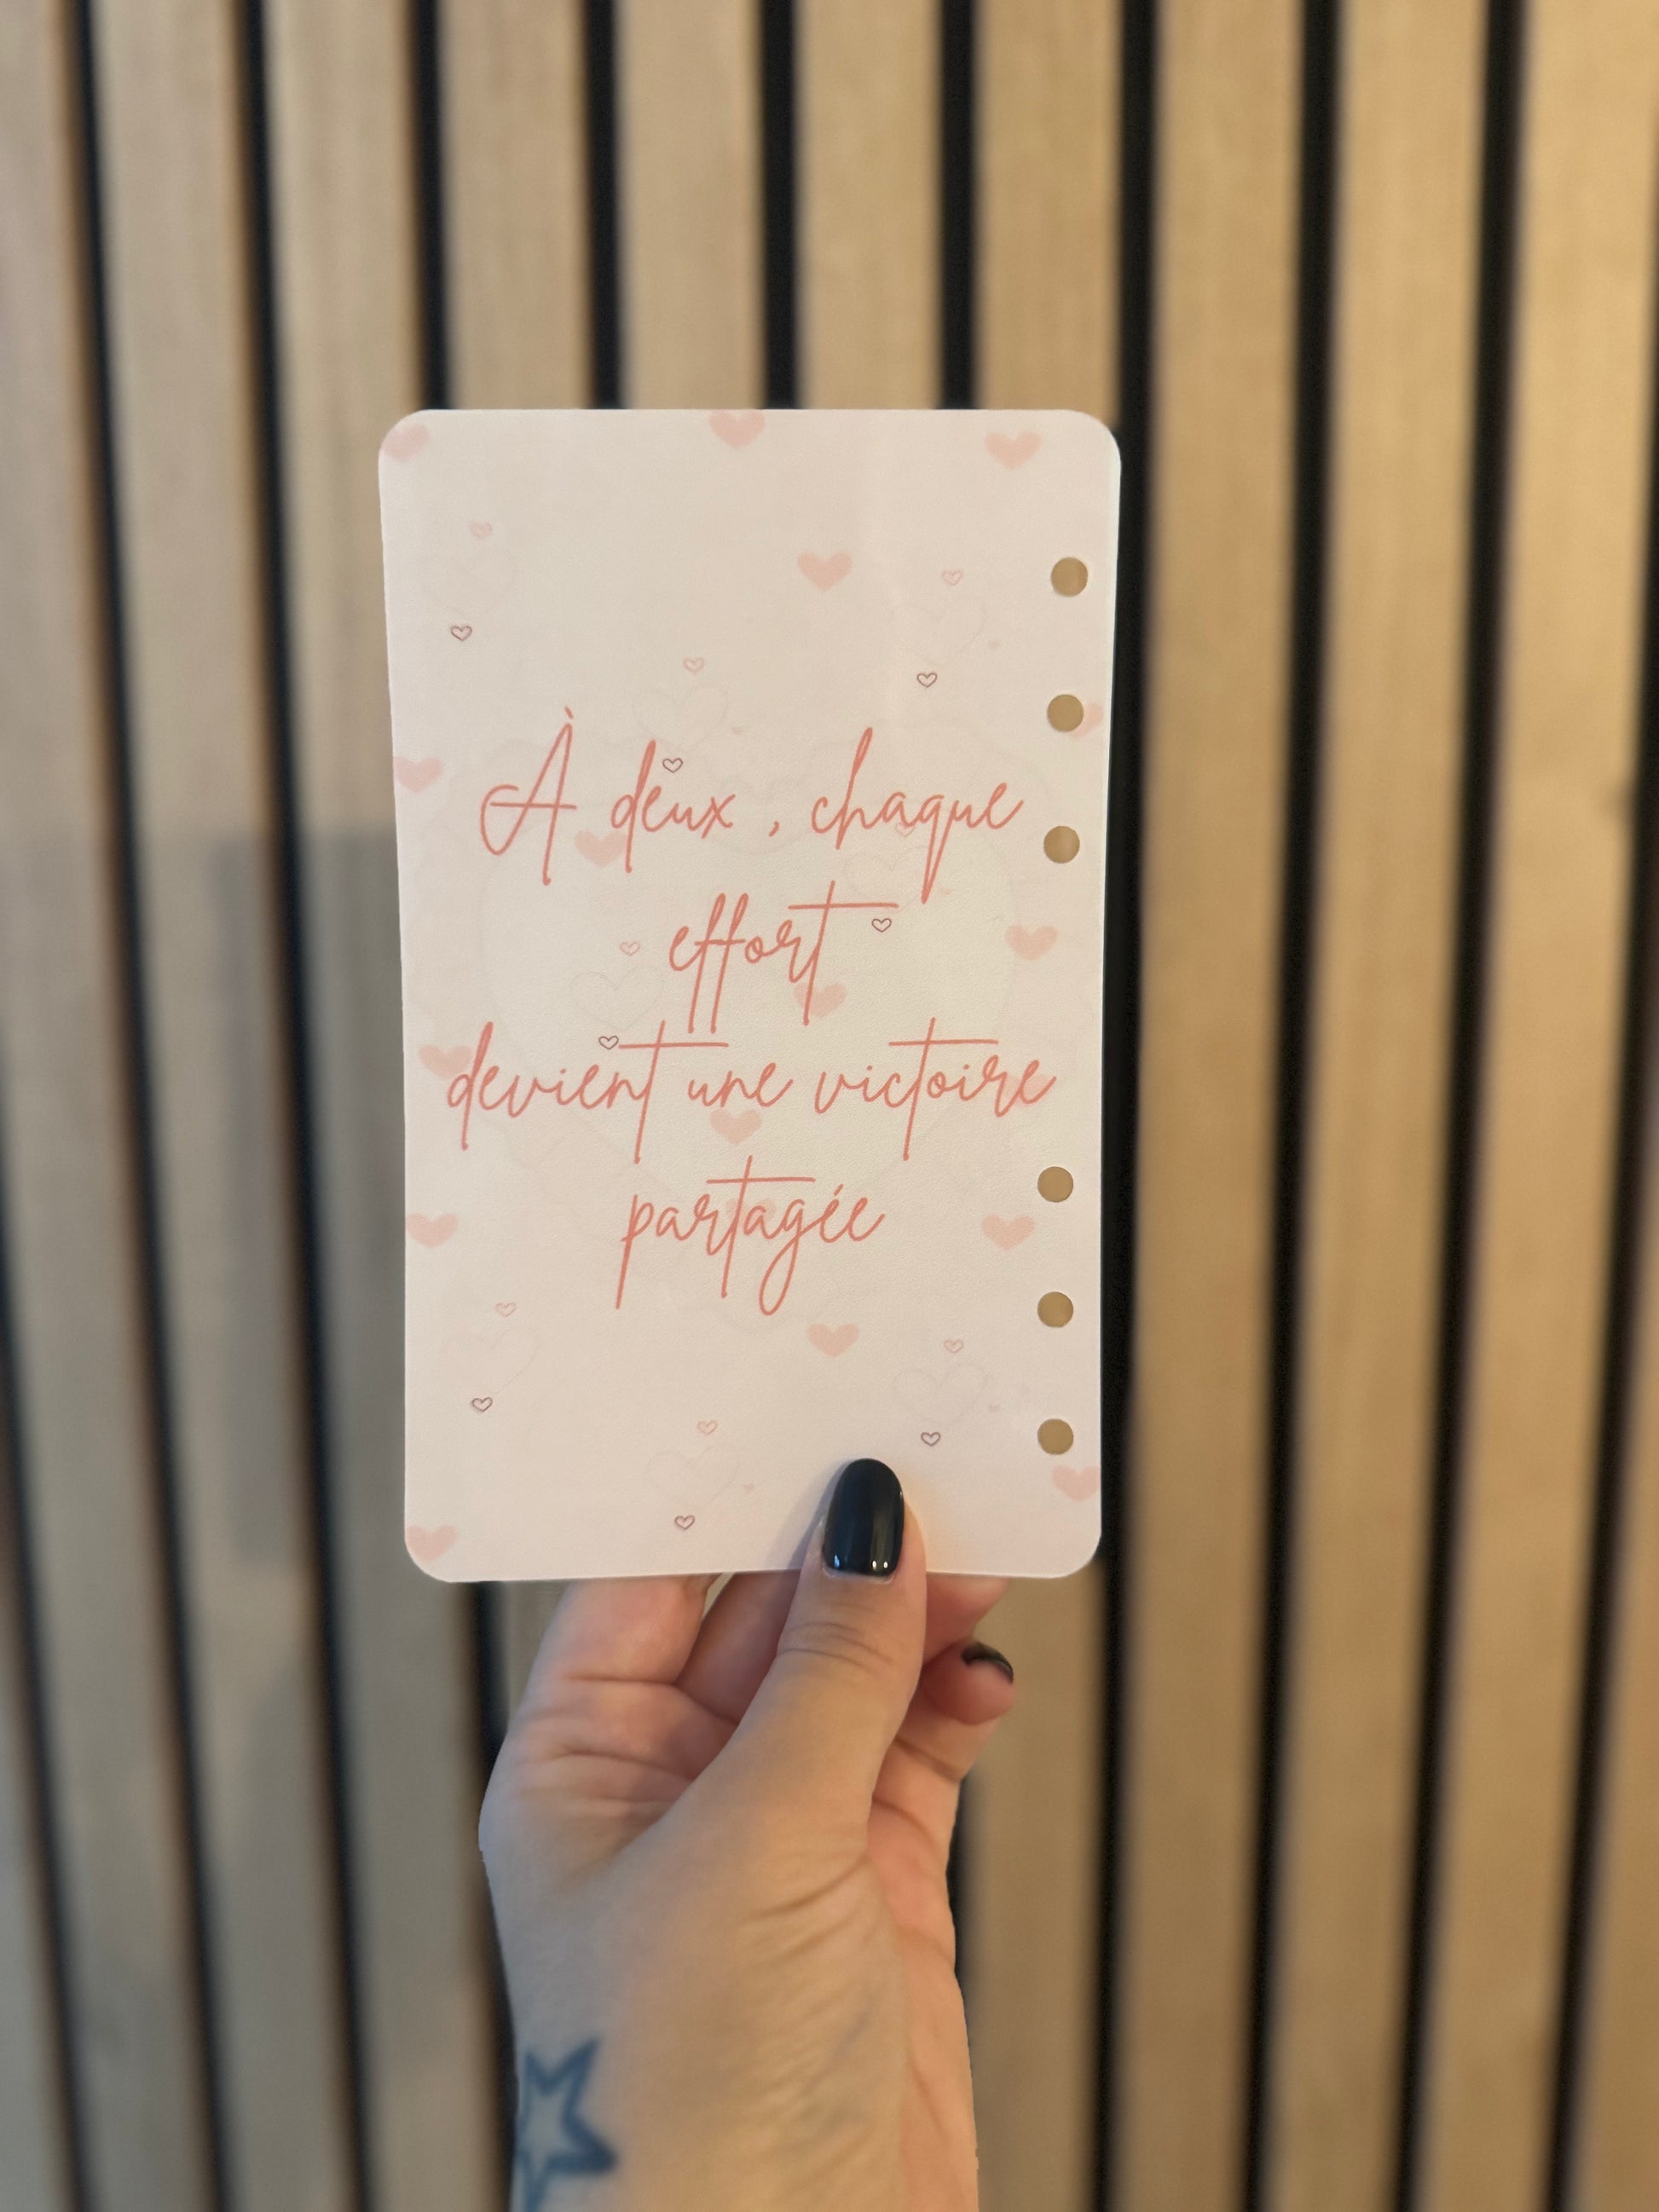 À deux , chaque
effort
devient une victoire
partagée